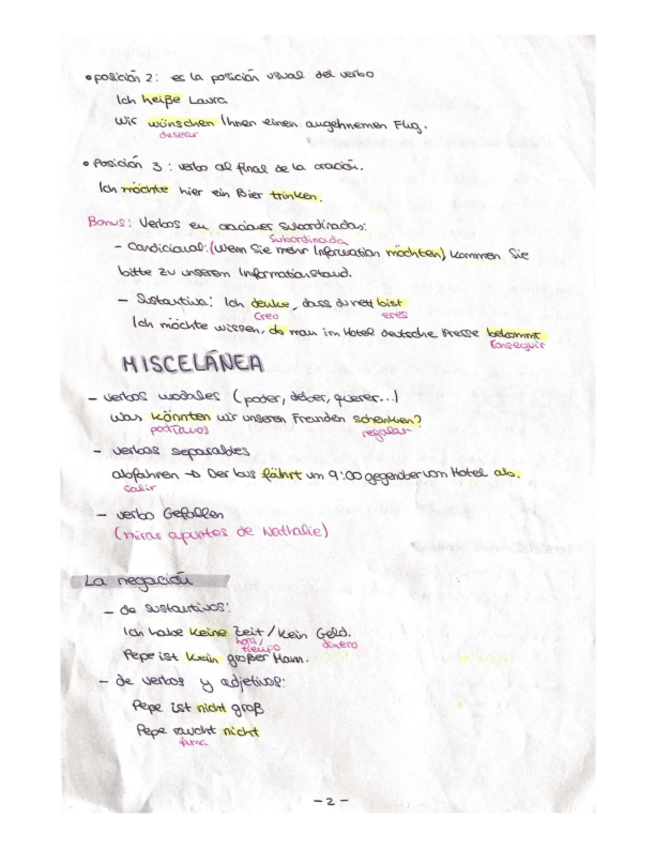 • posición 2: es la posición usual del verbo
Ich heiße Laura
Wir wünschen Ihnen einen angehnemen Flug.
desear
• Posición 3: verbo al final de la oración.
Ich möchte hier ein Bier trinken.
Bonus: Verbos en oraciones subordinadas:
Subordinada
- Condicional: (Wenn Sie mehr Information möchten) kommen Sie
bitte zu unserem Informationstand.
- Sustantiva: Ich denke, dass du nett bist
Creo eres
Ich möchte wissen, ob man im Hotel deutsche Presse bekommt
Conseguir
MISCELÁNEA
- verbos modales (poder, deber, querer...)
Was könnten wir unseren Freunden schenken?
podríamos regalar
- verbos separables
abfahren → Der bus fährt um 9:00 gegenüber von Hotel ab.
salir
- verbo Gefallen
(mirar apuntes de Nathalie)
La negación
- de sustantivos:
Ich habe keine Zeit / kein Geld.
hora/ tiempo dinero
Pepe ist kein großer Mann.
- de verbos y adjetivos:
Pepe ist nicht groß
Pepe raucht nicht
fuma
- 2 -